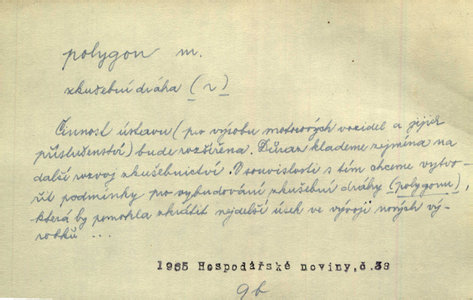 polygon m.
zkušební dráha (v)
Činnost ústavu (pro výrobu motorových vozidel a jejich
příslušenství) bude rozšířena. Důraz klademe zejména na
další rozvoj zkušebnictví. V souvislosti s tím chceme vytvo-
řit podmínky pro vybudování zkušební dráhy (polygonu),
která by pomohla zkrátit nejdelší úsek ve vývoji nových vý-
robků ...
1965 Hospodářské noviny, č.38
9b